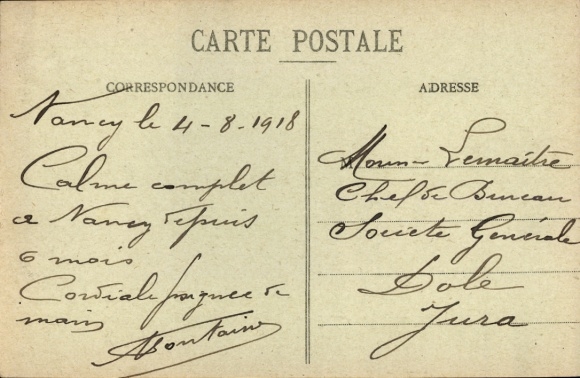 CARTE POSTALE
CORRESPONDANCE
Nancy le 4-8-1918
Calme complet
a Nancy depuis
6 mois
Cordiale poignee de
main
ADRESSE
Lemaître
Chef de Bureau
Societe Generale
Dole
Jura